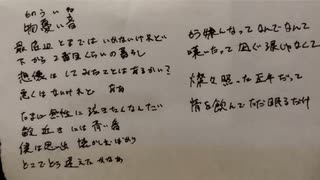 物憂い
最底辺とまではいかないけれど
下から2番目くらいの暮らし
想像はしてみたことはあるかい？
悪くはないけれど
たまに無性に泣きたくなんだい
最近さには青い春
僕は思い出 懐かしむばかり
どこでどう違えたかなあ
もう嫌んなって なんでなんて
嘆いたって 凪ぐ涙じゃなくて
燦々照った 正午だって
唾を飲んで ただ眠るだけ